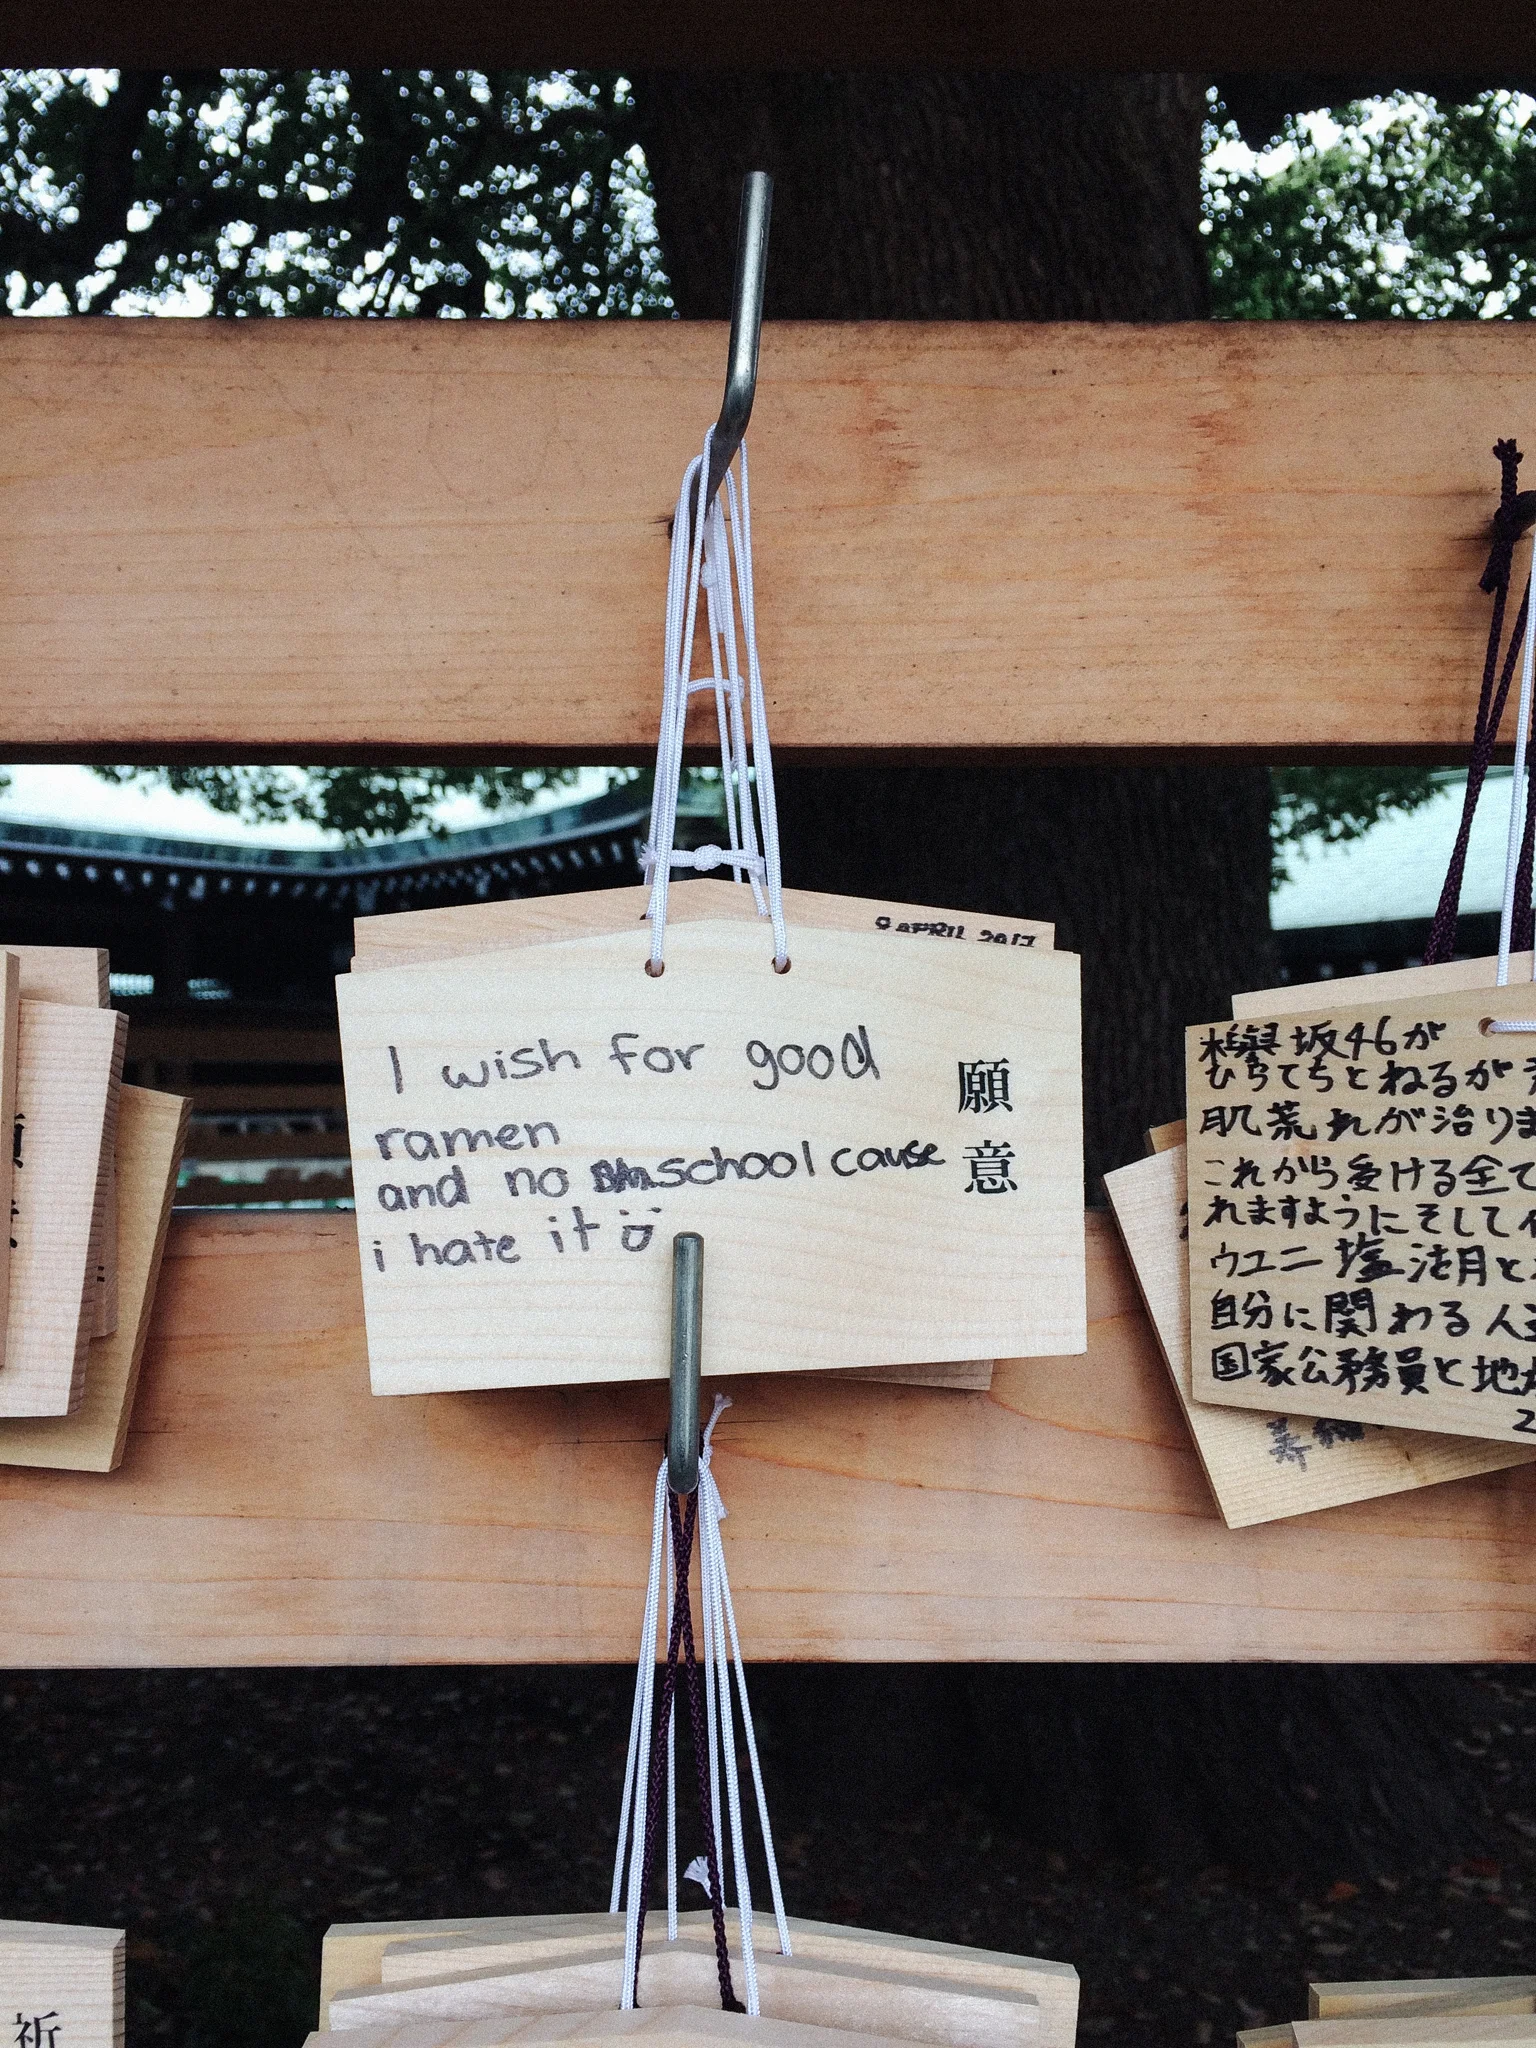 9 APRIL 2017
I wish for good
ramen
and no school cause
i hate it
願意
欅坂46が
ひらてちとねるが
肌荒れが治りま
これから受ける全て
れますようにそして
ウユニ塩湖月と
自分に関わる人
国家公務員と地
2
祈